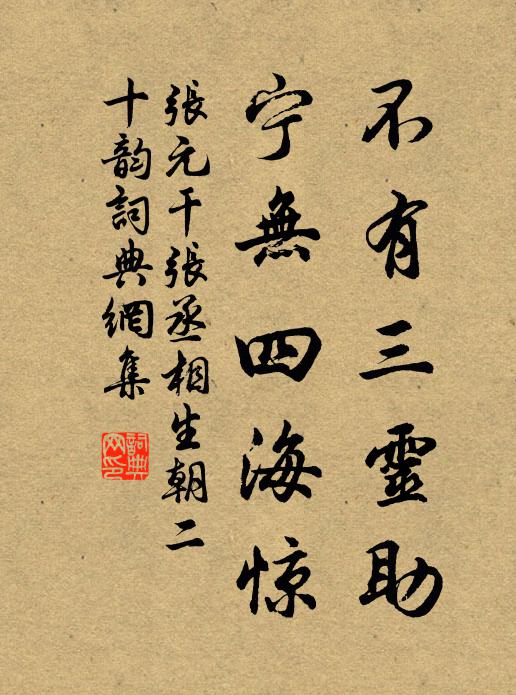 不有三靈助
宁無四海惊
張元干張丞相生朝二
十韵詞典網集
詞典
网印